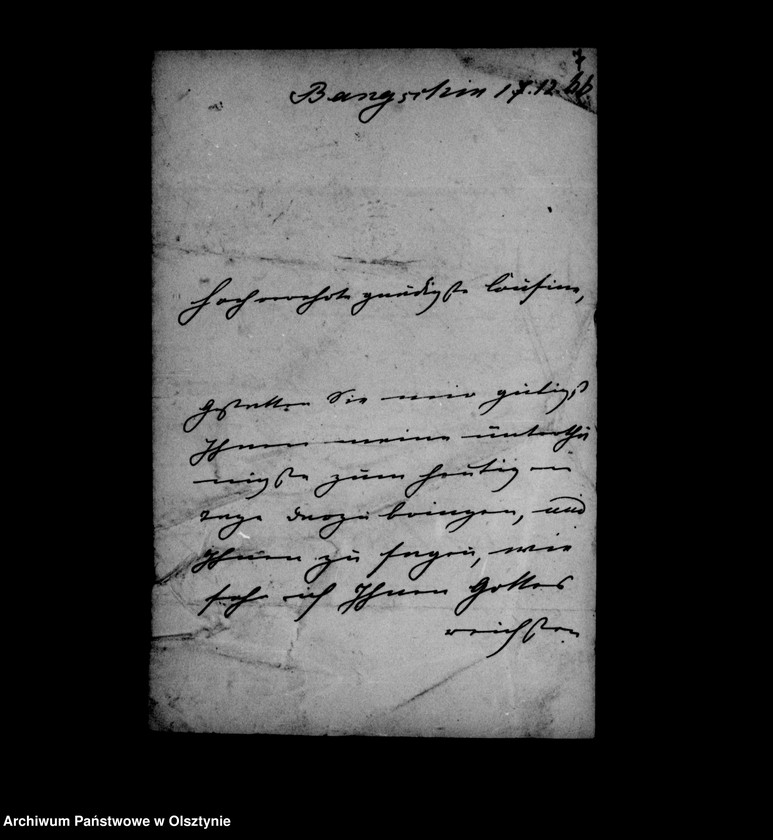 7
Bangschin 17.12.66.
Hochverehrte gnädigste Cousine,
Gestatten Sie mir gütigst
Ihnen meine unterthä
nigste zum heutigen
Tage darzubringen, und
Ihnen zu sagen, wie
sehr ich Ihnen Gottes
reichsten
Archiwum Państwowe w Olsztynie